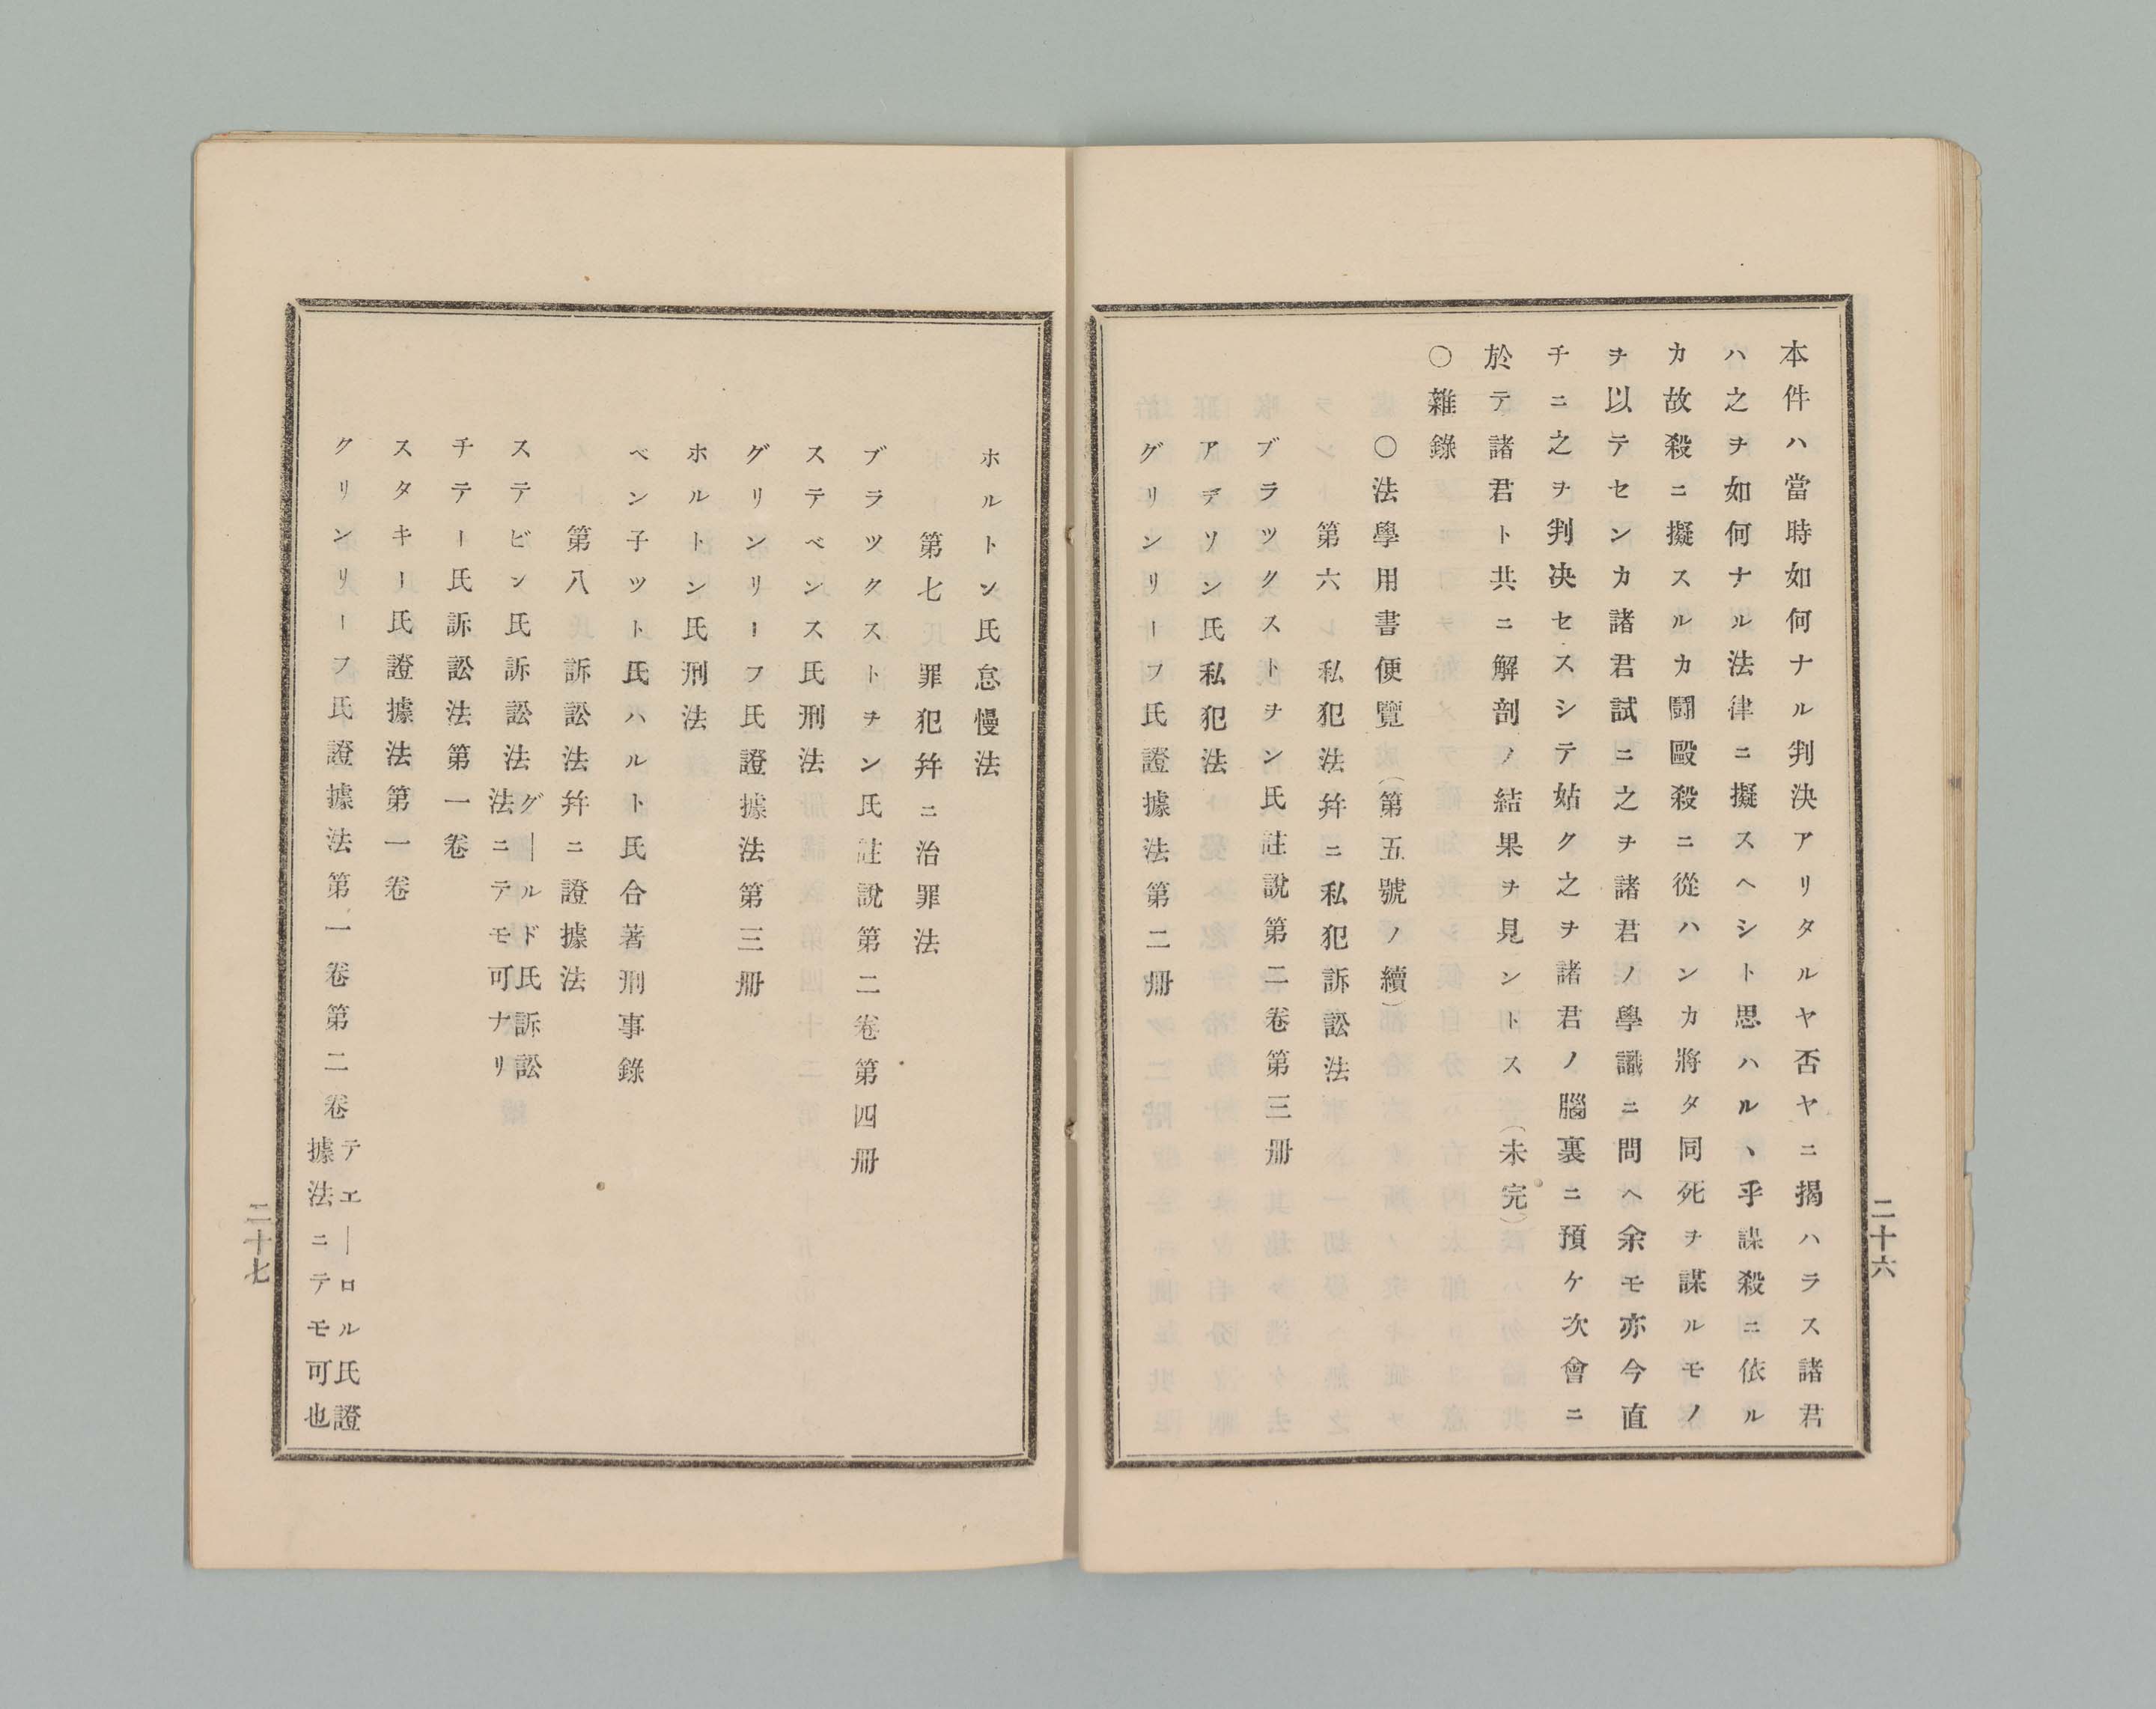 本件ハ當時如何ナル判決アリタルヤ否ヤニ揭ハラス諸君
ハ之ヲ如何ナル法律ニ擬スヘシト思ハルヽ乎謀殺ニ依ル
カ故殺ニ擬スルカ鬪毆殺ニ從ハンカ將タ同死ヲ謀ルモノ
ヲ以テセンカ諸君試ニ之ヲ諸君ノ學識ニ問ヘ余モ亦今直
チニ之ヲ判决セスシテ姑ク之ヲ諸君ノ腦裏ニ預ケ次會ニ
於テ諸君ト共ニ解剖ノ結果ヲ見ントス(未完)
〇雜錄
〇法學用書便覽(第五號ノ續)
第六 私犯法幷ニ私犯訴訟法
ブラツクストヲン氏註說第二卷第三册
アデソン氏私犯法
グリンリーフ氏證據法第二册
二十六
ホルトン氏怠慢法
第七 罪犯幷ニ治罪法
ブラツクストヲン氏註說第二卷第四册
ステベンス氏刑法
グリンリーフ氏證據法第三册
ホルトン氏刑法
ベン子ツト氏ハルト氏合著刑事錄
第八 訴訟法幷ニ證據法
ステビン氏訴訟法グールド氏訴訟法ニテモ可ナリ
チテー氏訴訟法第一卷
スタキー氏證據法第一卷
クリンリーフ氏證據法第一卷第二卷テエーロル氏證據法ニテモ可也
二十七